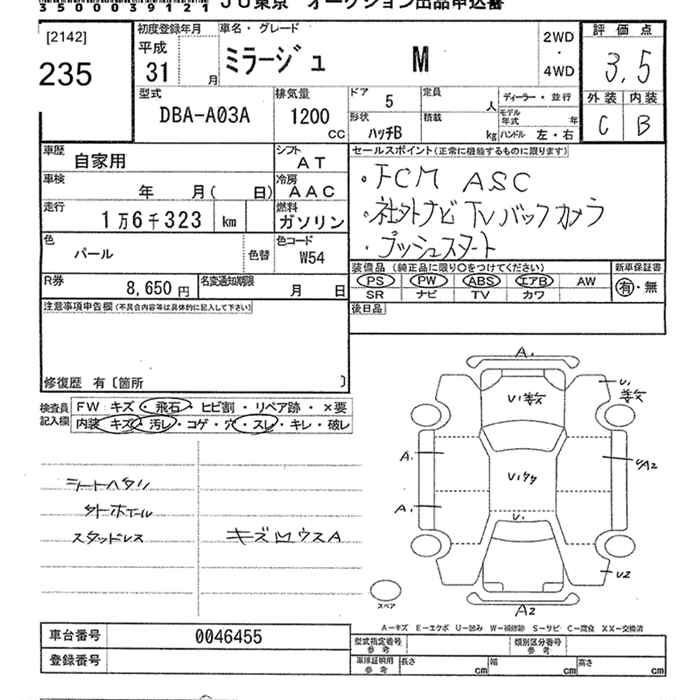 3500039121 JU東京 オークション出品申込書
[2142]
235
初度登録年月
平成
31 月
車名・グレード
ミラージュ M
2WD
・
4WD
評価点
3,5
外装 内装
C B
型式
DBA-A03A
排気量
1200
CC
ドア 5
形状
ハッチB
定員 人
積載 kg
ディーラー・並行
モデル年式 年
ハンドル 左・右
車歴
自家用
シフト
AT
車検
年 月( 日)
冷房
AAC
走行
1万6千323 km
燃料
ガソリン
色
パール
色替
色コード
W54
R券
8,650円
名変通知期限
月 日
セールスポイント(正常に機能するものに限ります)
・FCM ASC
・社外ナビ TV バックカメラ
・プッシュスタート
装備品(純正品に限り○をつけてください)
PS PW ABS エアB AW
SR ナビ TV カワ
新車保証書
有・無
後日品
注意事項申告欄(不具合内容等は具体的に記入して下さい)
修復歴 有〔箇所 〕
検査員記入欄
FW キズ・飛石・ヒビ割・リペア跡・×要
内装 キズ・汚レ・コゲ・穴・スレ・キレ・破レ
シートヘタリ
外ホイール
スタッドレス
A.
U.
U.
A.
A.
U.
U2
A2
スペア
A-キズ E-エクボ U-凹み W-補修跡 S-サビ C-腐食 XX-交換済
車台番号 0046455
登録番号
型式指定番号
参考
類別区分番号
参考
車庫証明用
参考
長さ cm 幅 cm 高さ cm